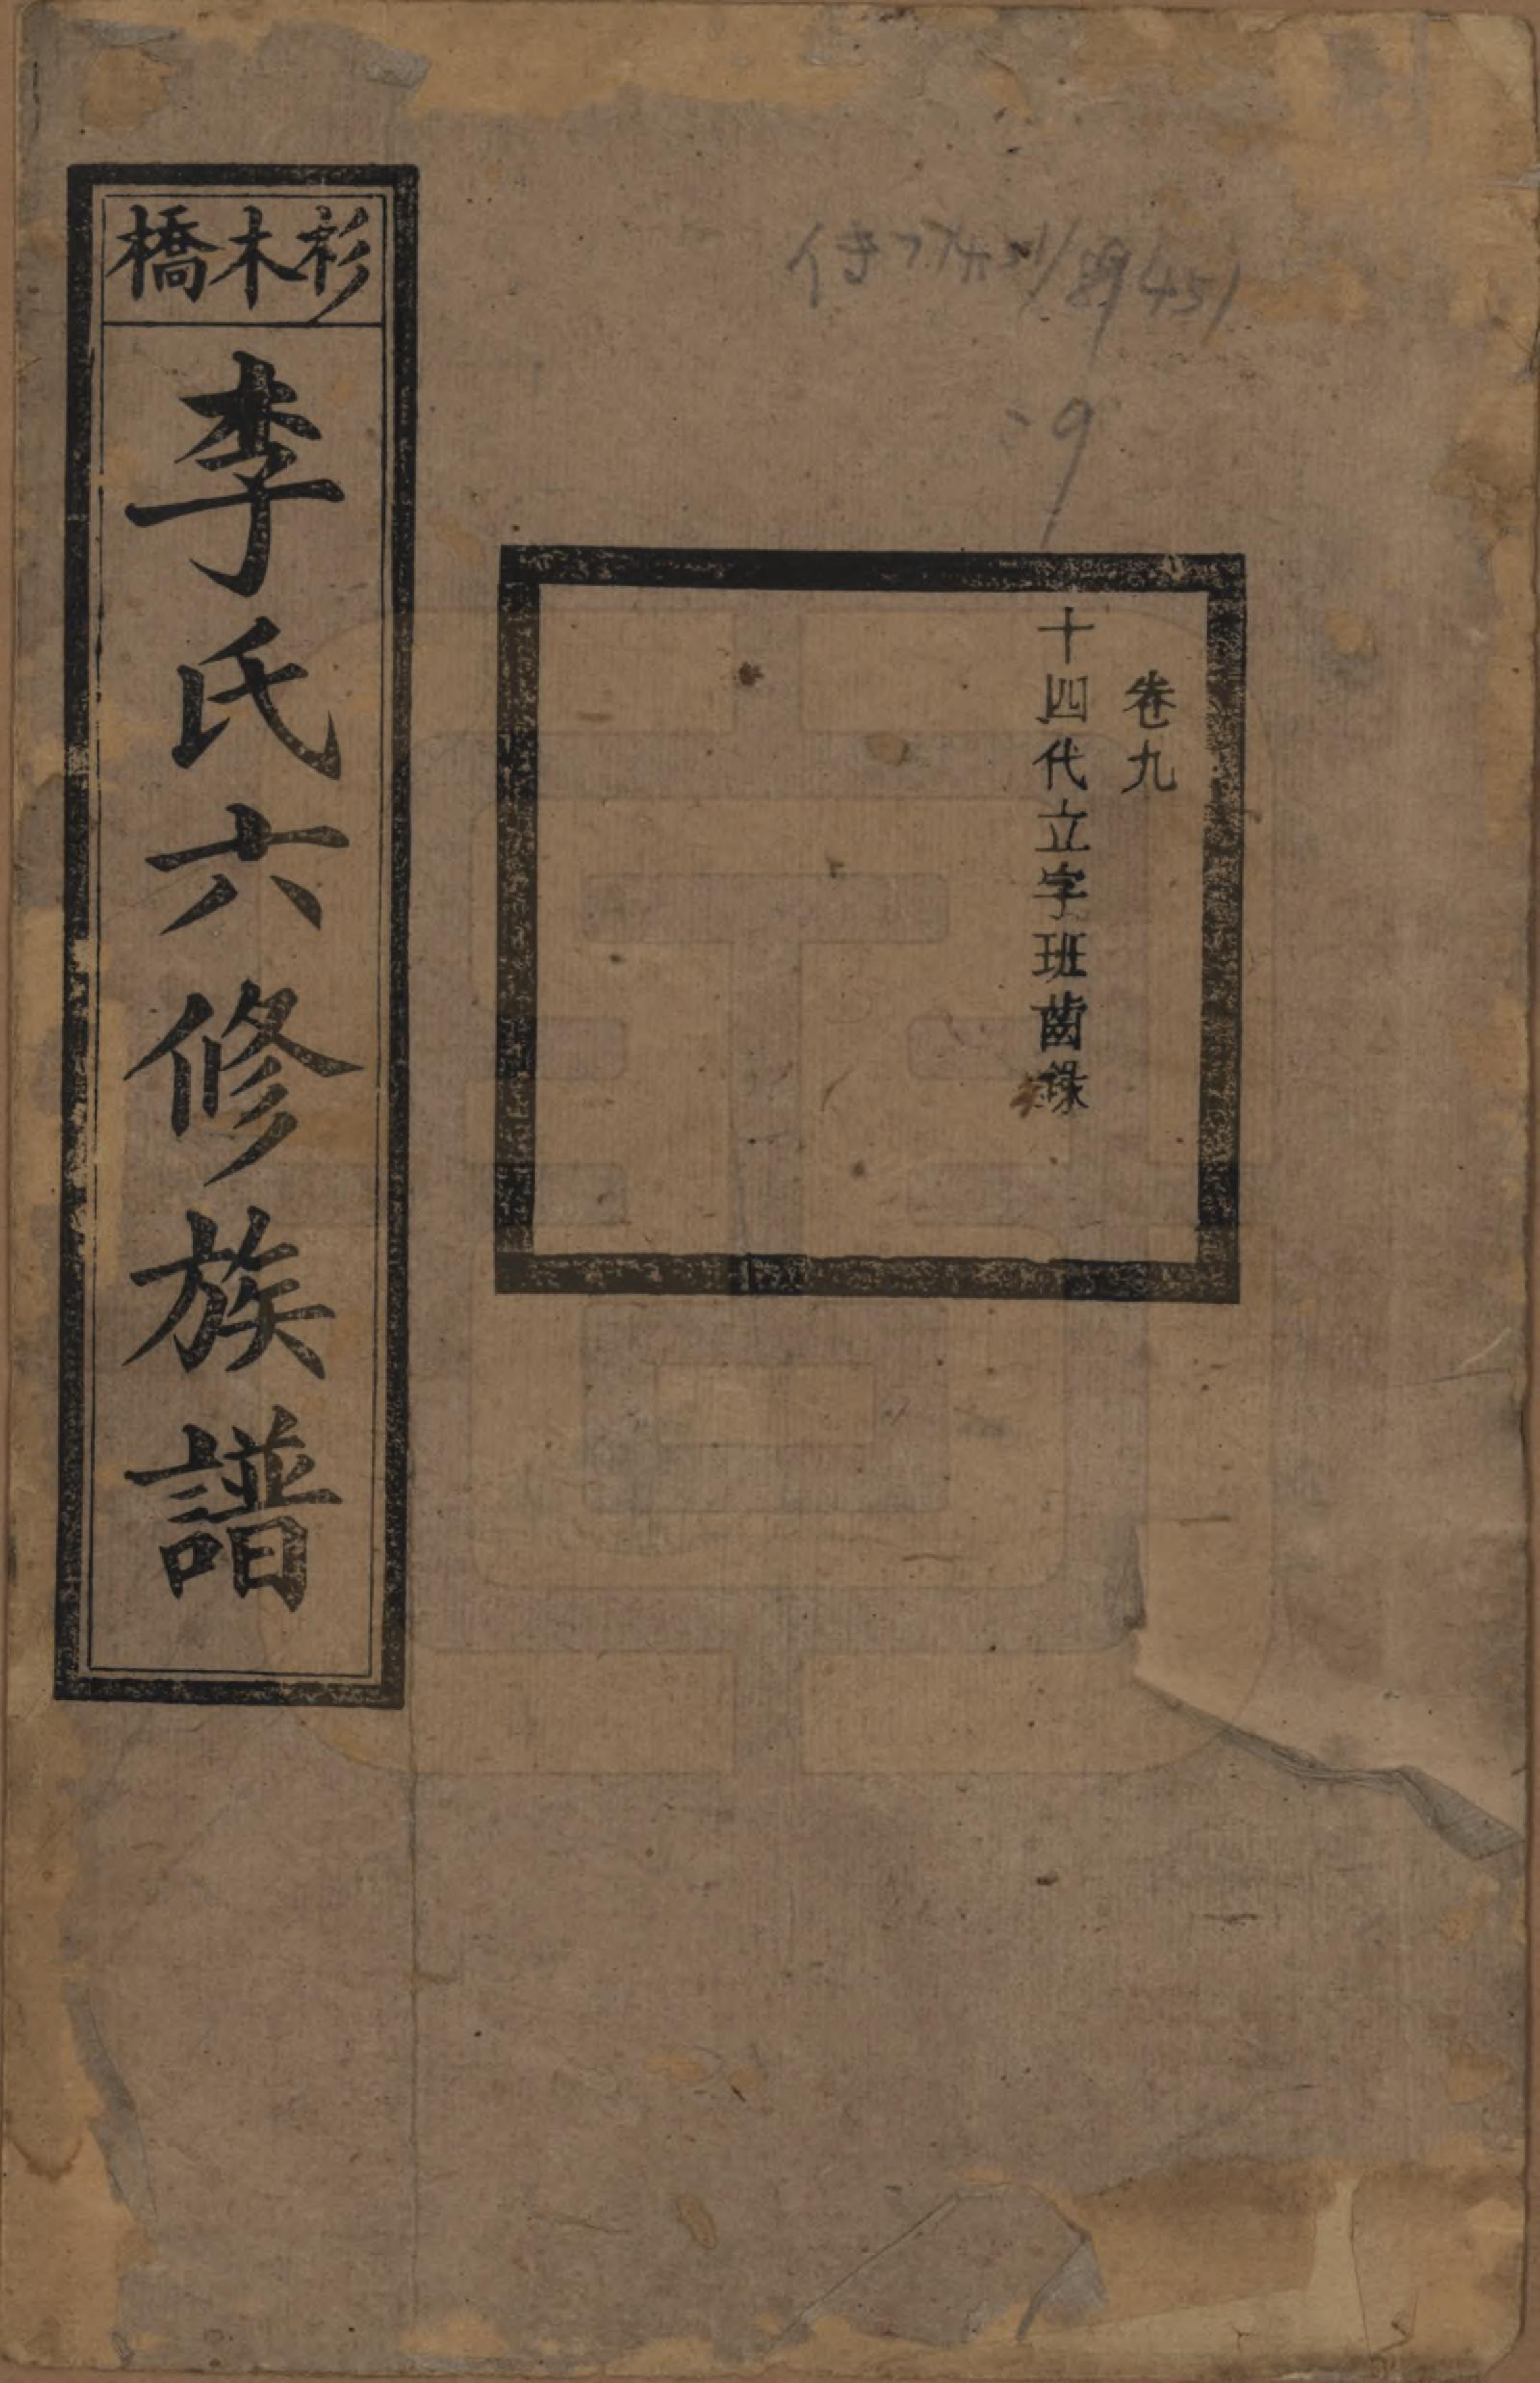 杉木橋
李氏六修族譜
卷九
十四代立字班齒錄